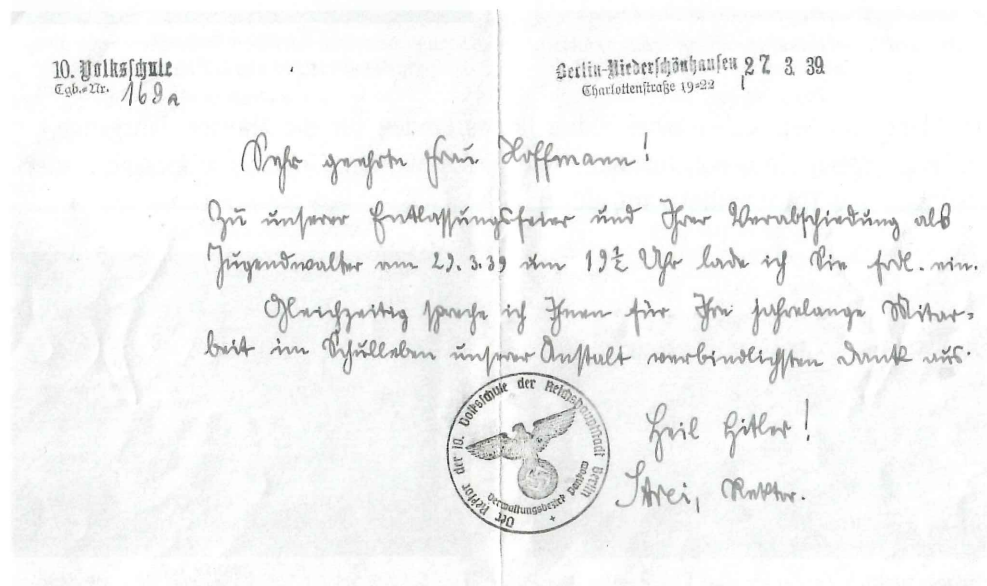 10. Volksschule
Tgb.-Nr. 169a
Berlin-Niederschönhausen 27. 3. 39
Charlottenstraße 19-22
Sehr geehrte Frau Hoffmann!
Zu unserer Entlassungsfeier und Ihrer Verabschiedung als
Jugendwalter am 29. 3. 39 um 19½ Uhr lade ich Sie frdl. ein.
Gleichzeitig spreche ich Ihnen für Ihre jahrelange Mitar-
beit im Schulleben unserer Anstalt verbindlichsten Dank aus.
Heil Hitler!
Rektor.
Der Rektor der 10. Volksschule der Reichshauptstadt Berlin
Verwaltungsbezirk Pankow